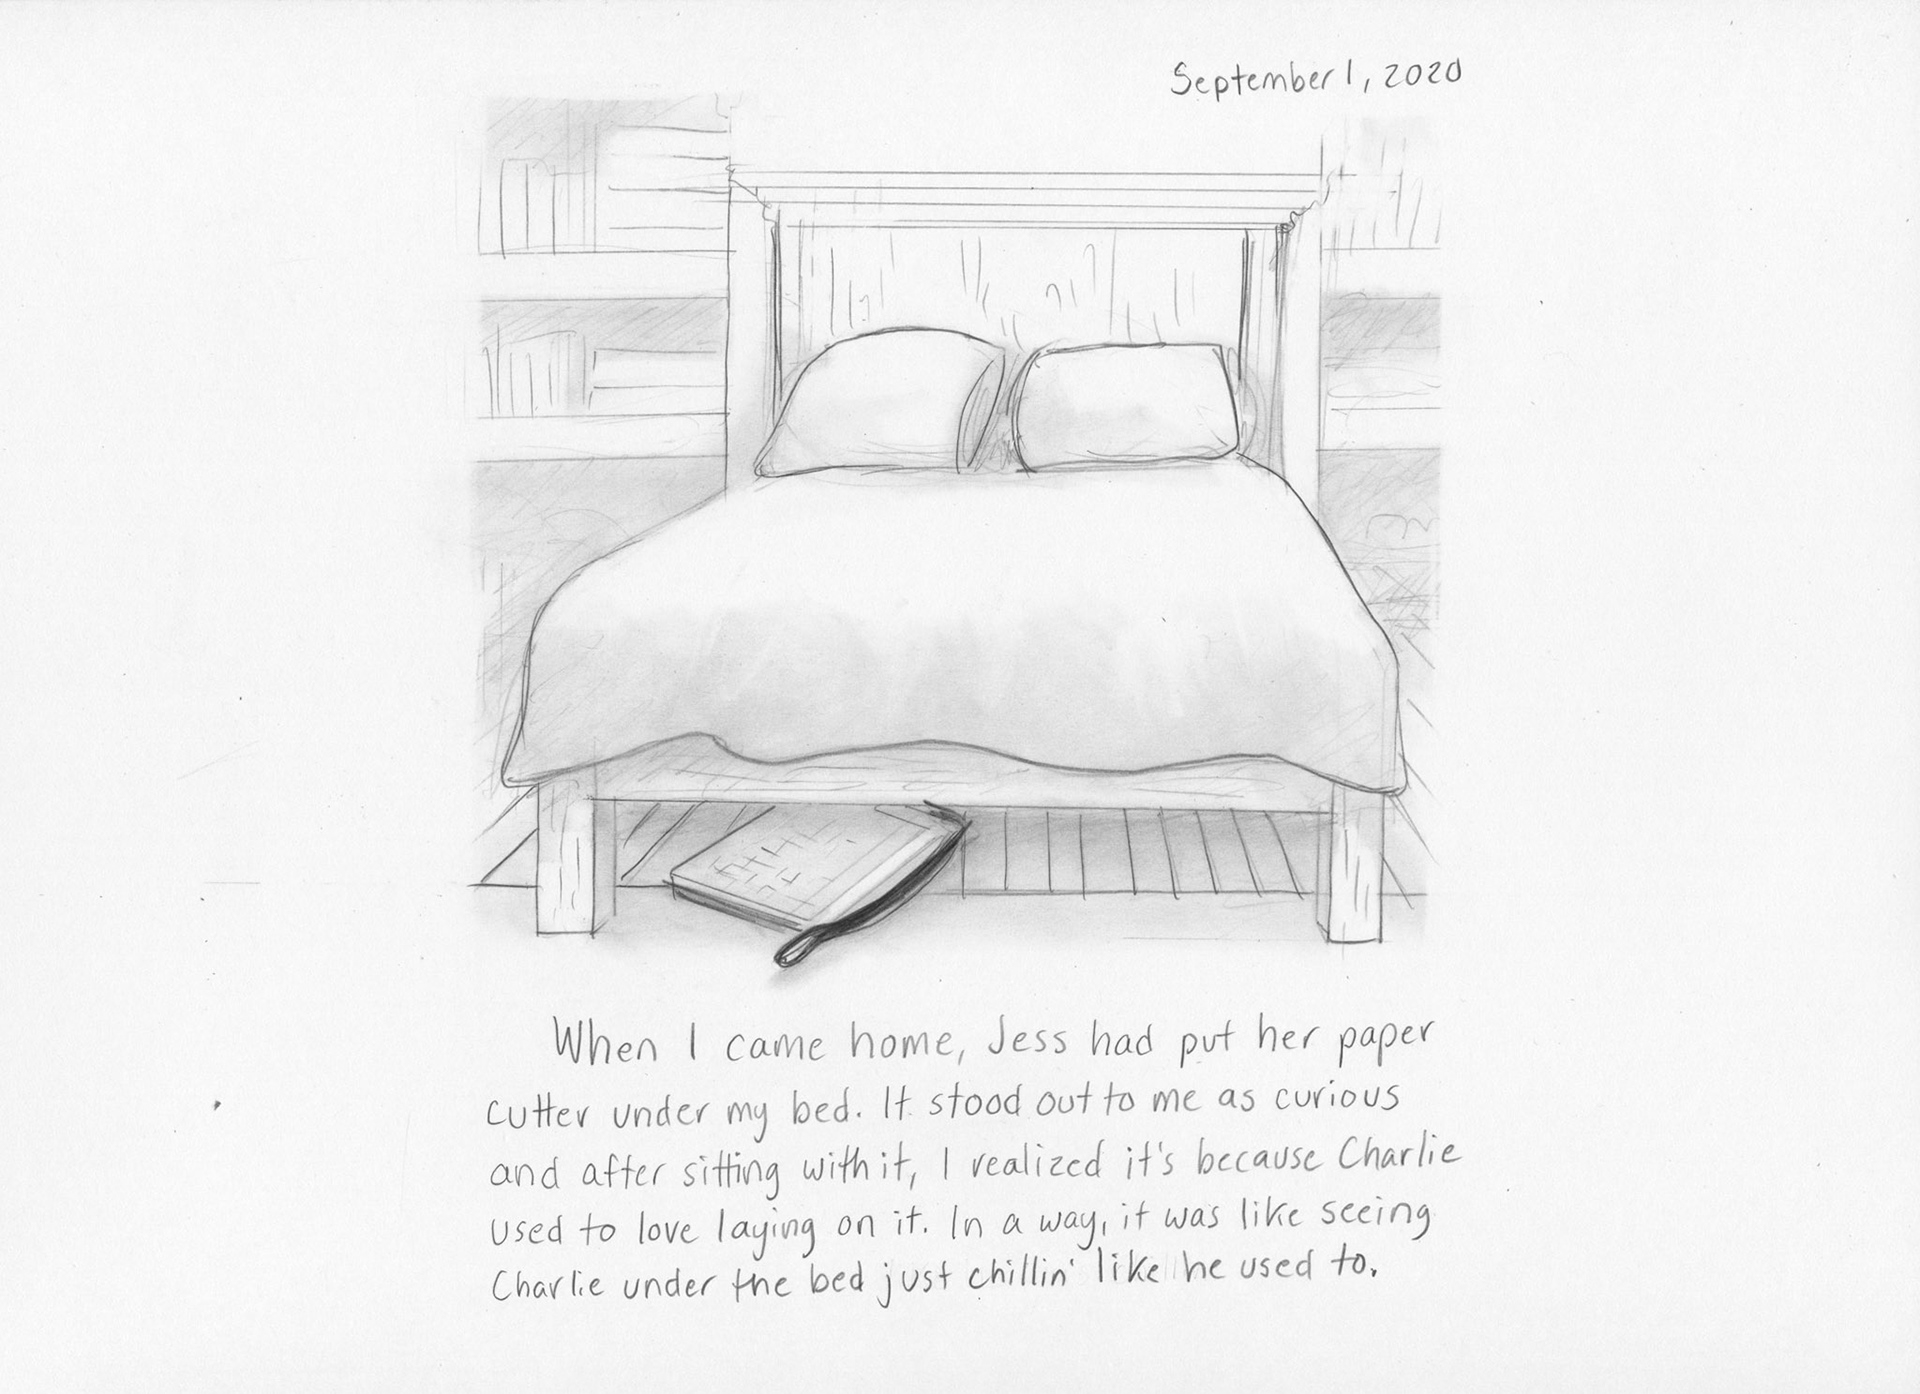 September 1, 2020
When I came home, Jess had put her paper
cutter under my bed. It stood out to me as curious
and after sitting with it, I realized it's because Charlie
used to love laying on it. In a way, it was like seeing
Charlie under the bed just chillin' like he used to.